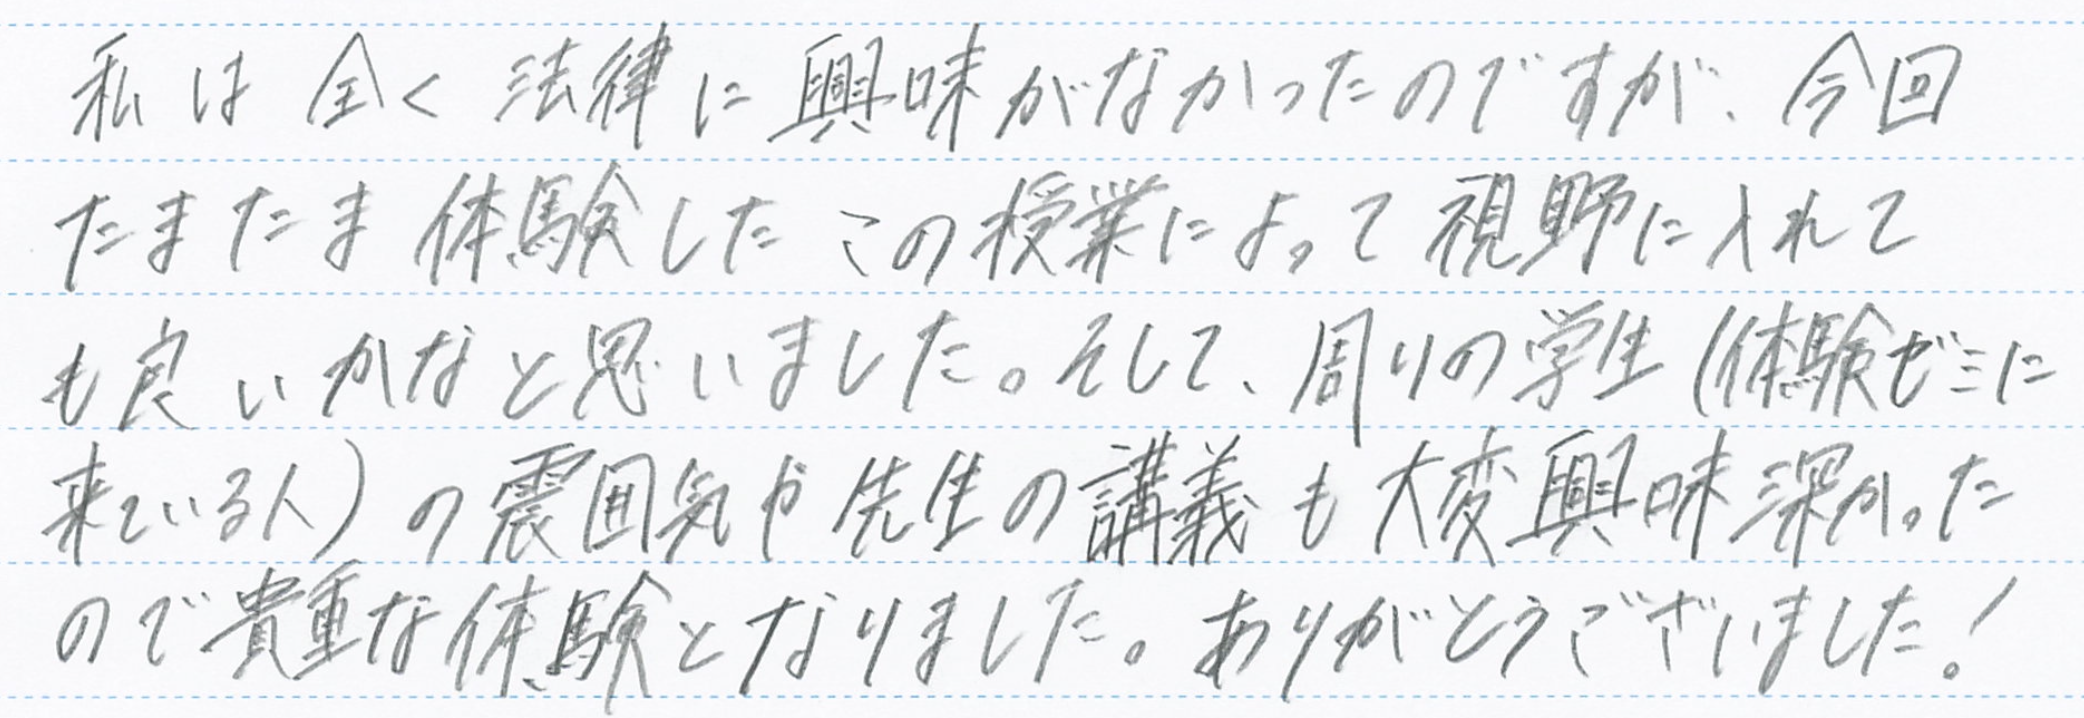 私は全く法律に興味がなかったのですが、今回
たまたま体験したこの授業によって視野に入れて
も良いかなと思いました。そして、周りの学生(体験ゼミに
来ている人)の震囲気や先生の講義も大変興味深かった
ので貴重な体験となりました。ありがとうございました!